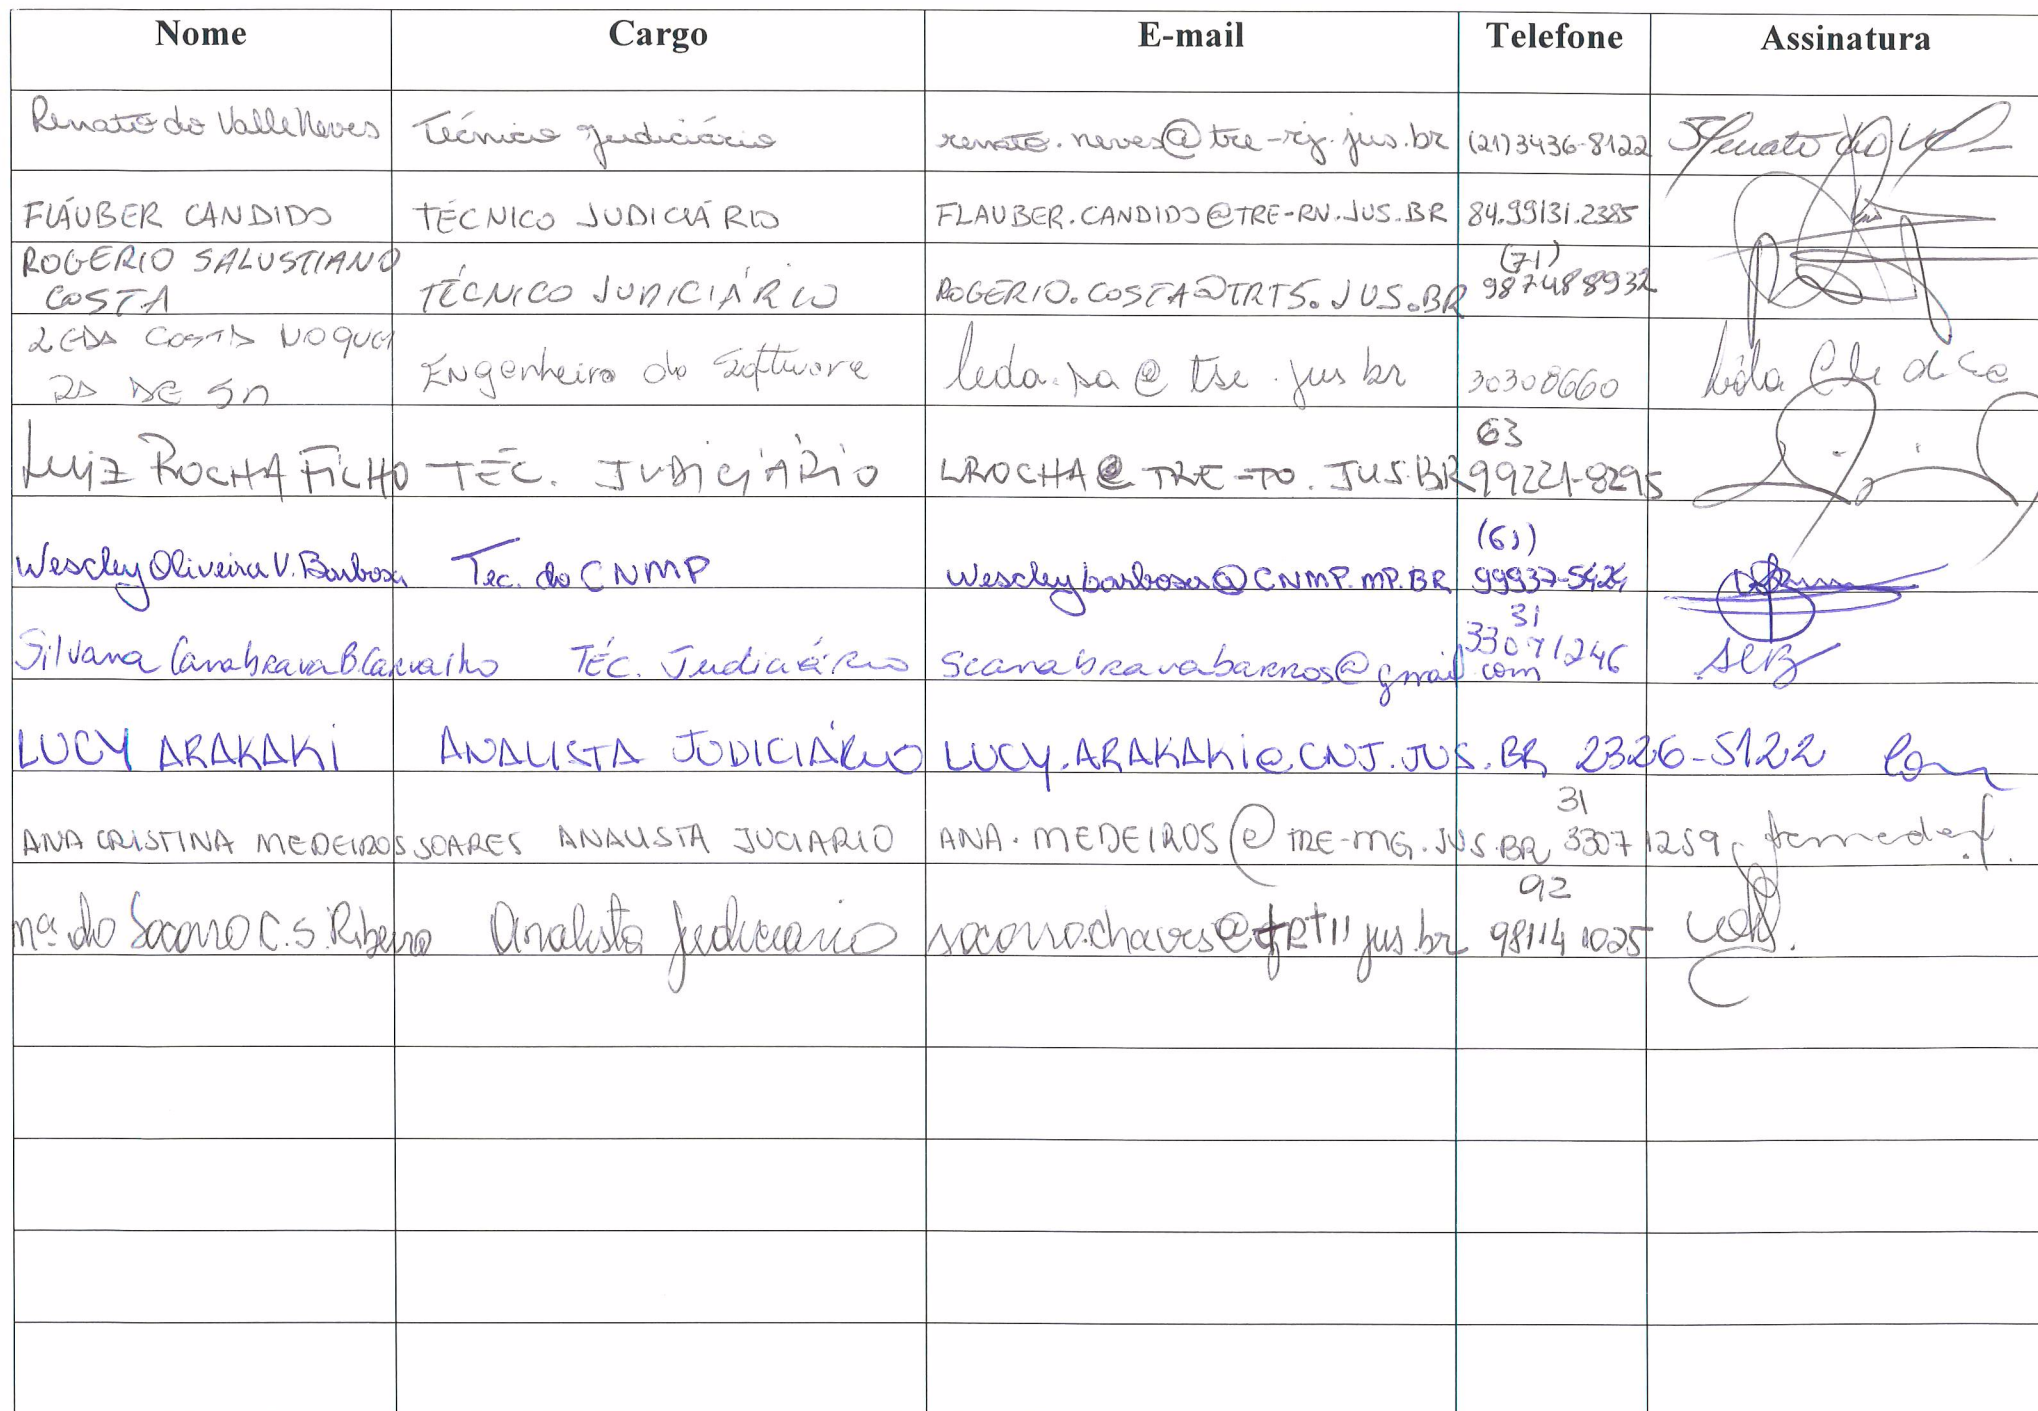 Nome Cargo E-mail Telefone Assinatura
Renato do Valle Neves Técnico Judiciário renato.neves@tre-rj.jus.br (21)3436-8122 Renato do
FLÁUBER CANDIDO TÉCNICO JUDICIÁRIO FLAUBER.CANDIDO@TRE-RN.JUS.BR 84.99131.2385
ROGERIO SALUSTIANO (71)
COSTA TÉCNICO JUDICIÁRIO ROGERIO.COSTA@TRT5.JUS.BR 987488932
LEDA COSTA NOGUEI
RA DE SA Engenheiro de Software leda.sa@tse.jus br 30308660
63
Luiz ROCHA FILHO TÉC. JUDICIÁRIO LROCHA@TRE-TO.JUS.BR 99221-8295
(61)
Wescley Oliveira V. Barbosa Tec. do CNMP wescleybarbosa@CNMP.MP.BR 99937-5424
31
Silvana Canabrava B Carvalho TÉC. Judiciário scanabravabarros@gmail com 33071246
LUCY ARAKAKI ANALISTA JUDICIÁRIO LUCY.ARAKAKI@CNJ.JUS.BR 2326-5122
31
ANA CRISTINA MEDEIROS SOARES ANALISTA JUCIARIO ANA.MEDEIROS@TRE-MG.JUS.BR 33071259
92
Mª do Socorro C.S.Ribeiro Analista Judiciario socorro.chaves@trt11 jus.br 98114 1025